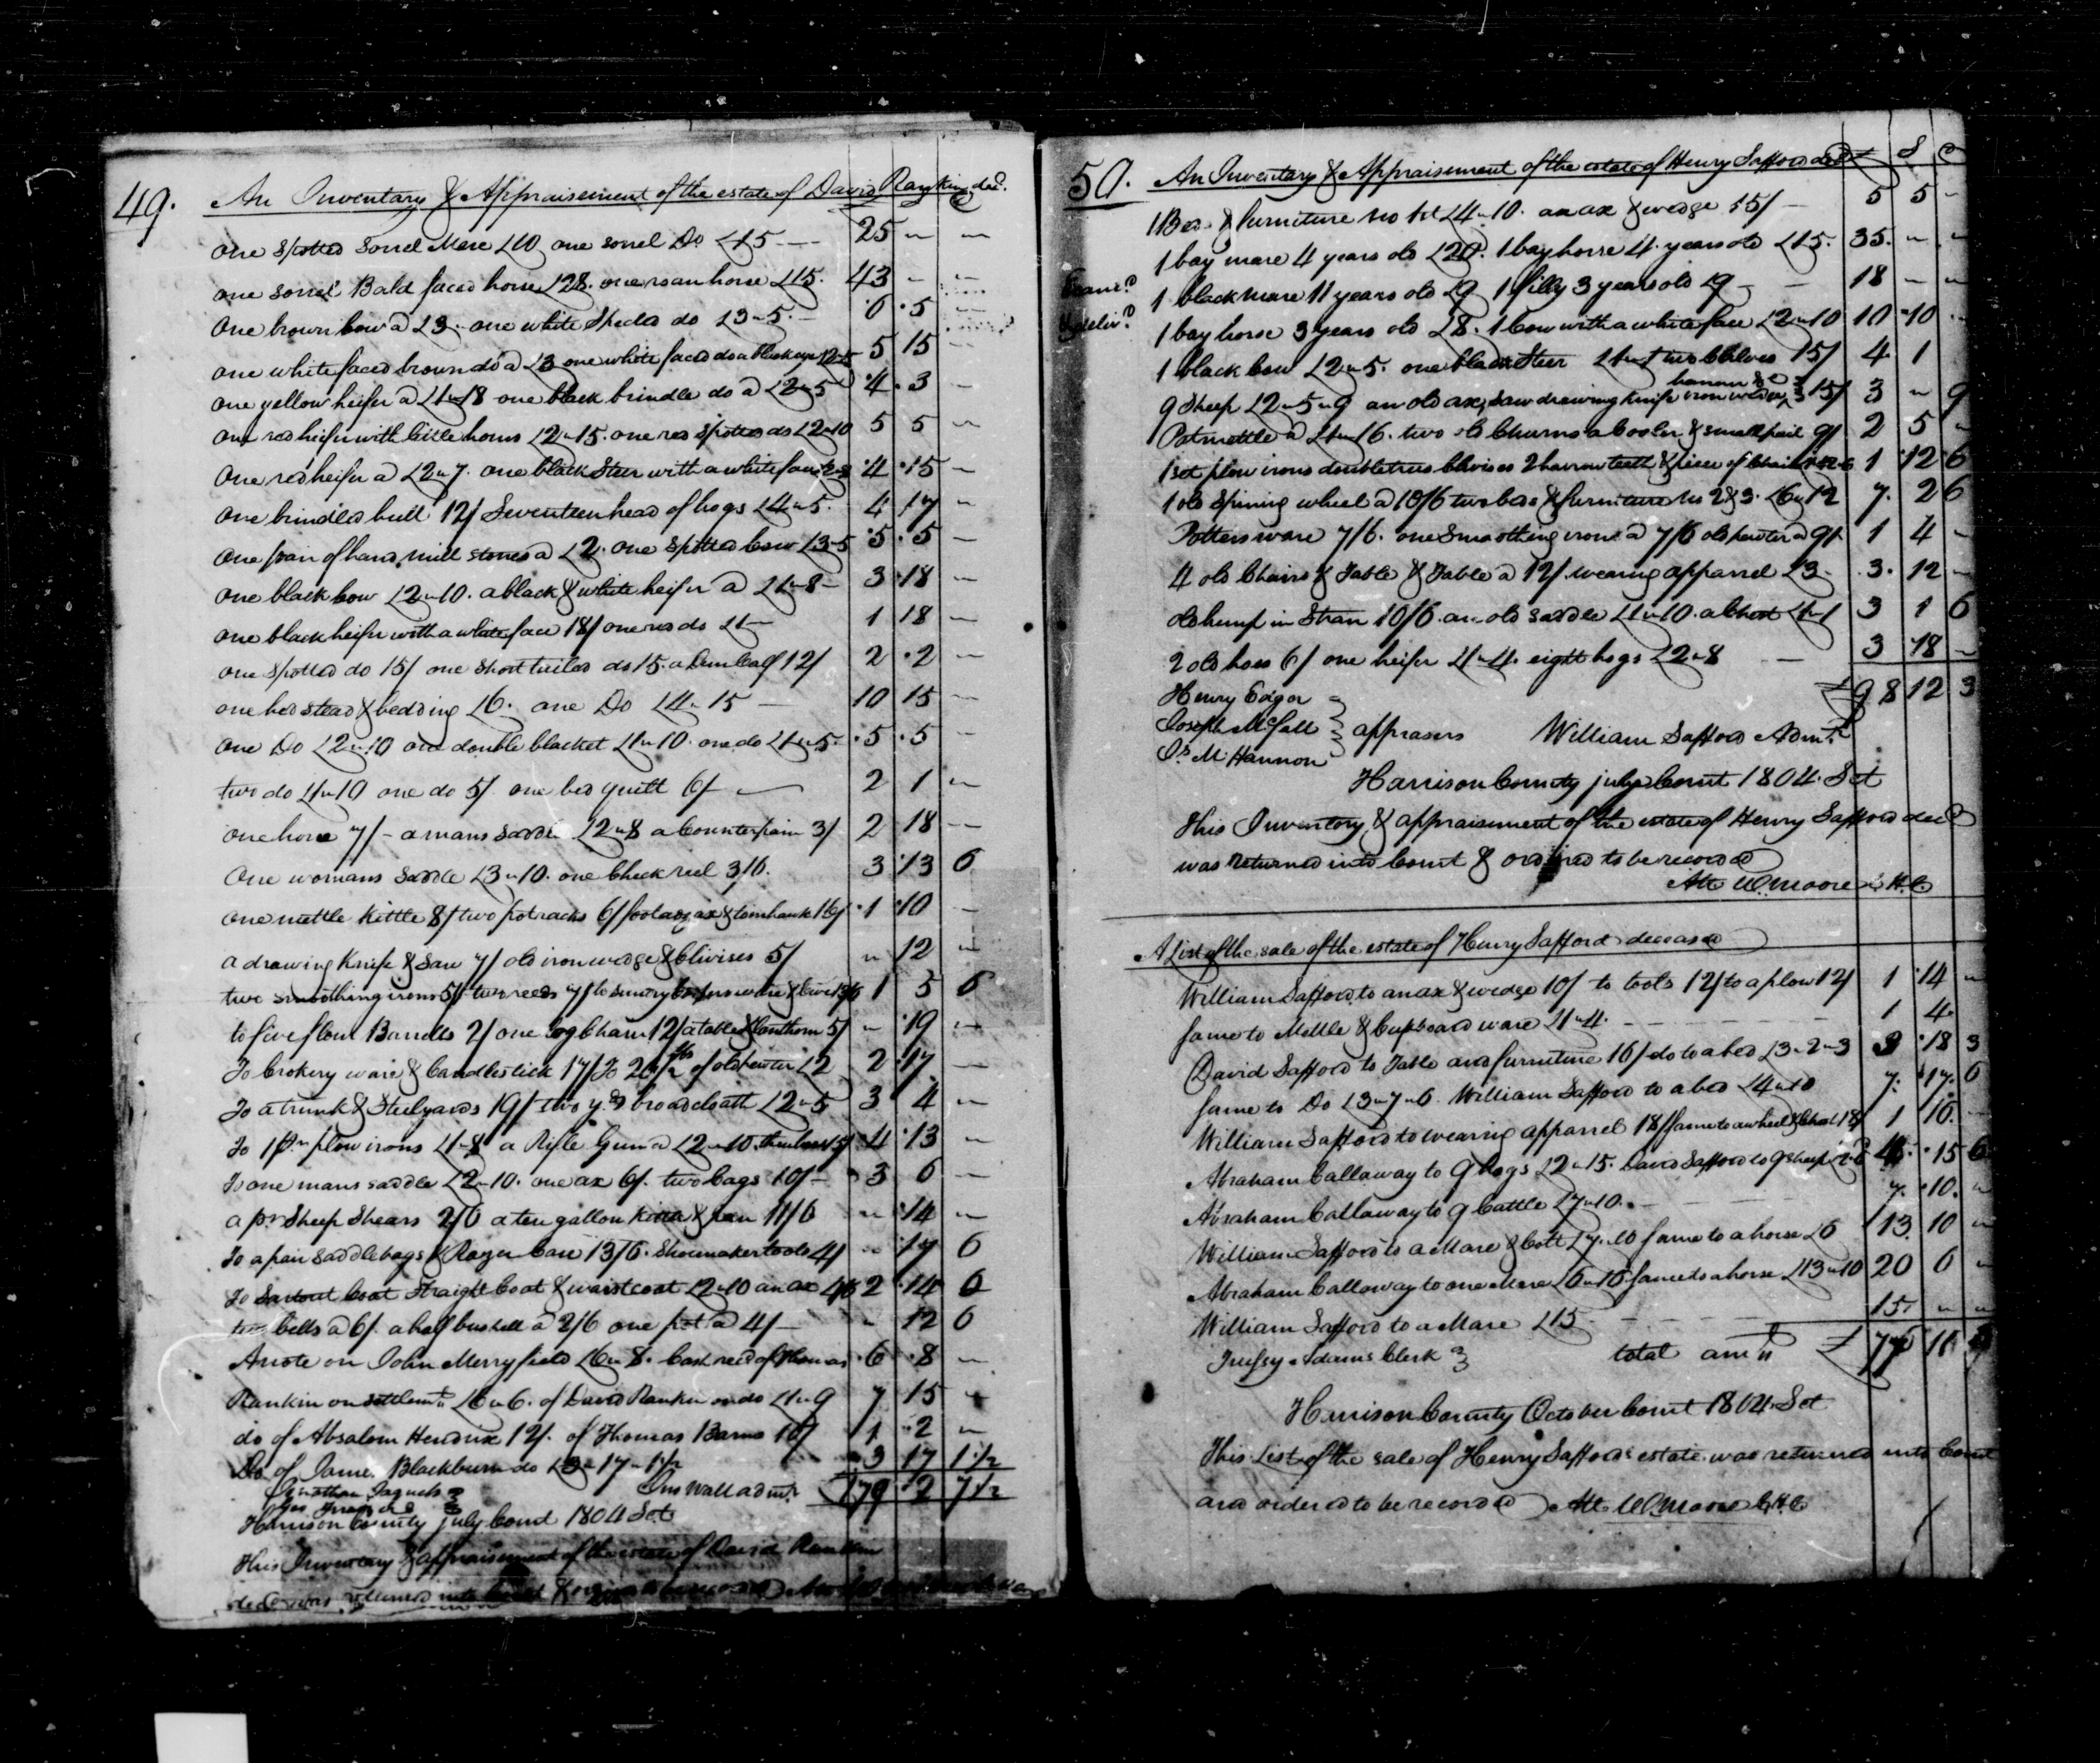 49. An Inventary & Appraisement of the estate of David Rankin decd.
one spotted sorrel Mare £10 one sorrel Do £15 25 " "
one sorrel Bald faced horse £28. one roan horse £15. 43 " "
One brown Cow a £3. one white Specled do £3"5. 6 5
one white faced brown do a £3 one white faced do a black eye £2"15 5 15
one yellow heifer a £1"18 one black brindle do a £2"5 4 3
one red heifer with little horns £2"15. one red spotted do £2"10 5 5
One red heifer a £2"7. one black Steer with a white face £2"8 4 15
One brindled bull 12/ Seventeen head of hogs £4"5. 4 17
one pair of hand mill stones a £2. one spotted Cow £3"5 5 5
one black Cow £2"10. a black & white heifer a £1"8 3 18
one black heifer with a white face 18/ one red do £1 1 18
one spotted do 15/ one short tailed do 15. a Dun Calf 12/ 2 2
one bed stead & bedding £6. one Do £4"15 10 15
one Do £2"10 one double blacket £1"10. one do £1"5. 5 5
two do £1"10 one do 5/ one bed quilt 6/ 2 1
one horse 7/ a mans saddle £2"8 a Counterpain 3/ 2 18
One womans saddle £3"10. one Check reel 3/6. 3 13 6
one mettle kittle 8/ two potracks 6/ foot adz ax & tomhawk 16/ 1 10
a drawing Knife & Saw 7/ old iron wedge & Clivises 5/ " 12
two smoothing irons 5/ two reeds 7/ to sundry 1 5 6
to five flour Barrells 2/ one log Chain 12/ a table & lanthorn 5/ " 19
To Crokery ware & Candlestick 17/ To 26 1/2 lbs of old pewter £2 2 17
To a trunk & Steelyards 19/ two yds broadcloath £2"5 3 4
To 1 pr plow irons £1"8 a Rifle Gun a £2"10. 15/ 4 13
To one mans saddle £2"10. one ax 6/. two bags 10/ 3 6
a pr Sheep Shears 2/6 a ten gallon kittle & pan 11/6 " 14
To a pair saddlebags & Razor Case 13/6. Shoemaker tools 4/ " 17 6
To Surtout Coat Straight Coat & waistcoat £2"10 an ax 4/6 2 14 6
two bells a 6/. a half bushell a 2/6 one pot a 4/ " 12 6
A note on John Merryfield £6"8. Cash recd of Thomas 6 8
Rankin on settlemt £6"6. of David Rankin on do £1"9 7 15
do of Absalom Hendrix 12/. of Thomas Barns 10/ 1 2
Do of James Blackburn do £3"17"1 1/2 3 17 1 1/2
Jonathan Jaquels Jno Wall admr. 179 2 7 1/2
Harrison County July Court 1804 Sct
This Inventary & appraisement of the estate of David Rankin
decd was returned into Court & ordered to be recorded
50. An Inventary & Appraisement of the estate of Henry Safford decd £ S D
1 Bed & furniture No 1st £4"10. an ax & wedge 15/ 5 5
1 bay mare 4 years old £20. 1 bay horse 4 years old £15. 35 " "
Examd. 1 black mare 11 years old £9 1 filly 3 years old £9 18 " "
& deliv.d 1 bay horse 3 years old £8. 1 Cow with a white face £2"10 10 10
1 black Cow £2"5. one black Steer £1"1 two Calves 15/ 4 1
9 Sheep £2"5"9 an old ax, saw drawing knife iron wedge 15/ 3 " 9
Potmettle a £1"16. two old Churns a Cooler & small pail 9/ 2 5
1 set plow irons doubletrees Clivises 2 harrow teeth & piece of Chain £1"12"6 1 12 6
1 old Spining wheel a 10/6 two beds & furniture No 2 & 3. £6"12 7 2 6
Potters ware 7/6. one Smoothing iron a 7/6 old pewter a 9/. 1 4
4 old Chairs & Table & Table a 12/. wearing apparrel £3 3 12
old hemp in Straw 10/6. an old saddle £1"10. a Chest £1"1 3 1 6
2 old hoes 6/ one heifer £1"4. eight hogs £2"8 3 18
£98 12 3
Henry Edgar
Joseph McFall } apprasers William Safford Admr.
Js. M. Hannon
Harrison County july Court 1804. Sct
This Inventary & appraisement of the estate of Henry Safford decd
was returned into Court & ordered to be recorded
Atte W. Moore C.H.C.
A List of the sale of the estate of Henry Safford deceased
William Safford to an ax & wedge 10/ to tools 12/ to a plow 12/ 1 14 "
same to Mettle & Cupboard ware £1"4. 1 4.
David Safford to Table and furniture 16/ do to a bed £3"2"3 3 18 3
same to Do £3"7"6. William Safford to a bed £4"10 7. 17. 6
William Safford to wearing apparrel 18/ same to a wheel & Chest 18/ 1 16.
Abraham Callaway to 9 hogs £2"15. David Safford to 9 sheep 15 6
Abraham Callaway to 9 Cattle £7"10. 7. 10. "
William Safford to a Mare & Colt £7"10 same to a horse £6 13 10 "
Abraham Calloway to one Mare £6"16 same to a horse £13"10 20 6 "
William Safford to a Mare £15 15. " "
Adams Clerk total amt £77 11
Harrison County October Court 1804. Sct
This List of the sale of Henry Saffords estate was returned into Court
and ordered to be recorded Atte W. Moore C.H.C